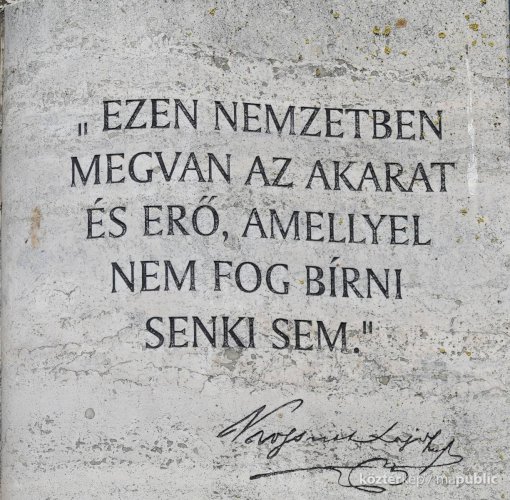 „ EZEN NEMZETBEN
MEGVAN AZ AKARAT
ÉS ERŐ, AMELLYEL
NEM FOG BÍRNI
SENKI SEM."
közterkep / mapublic